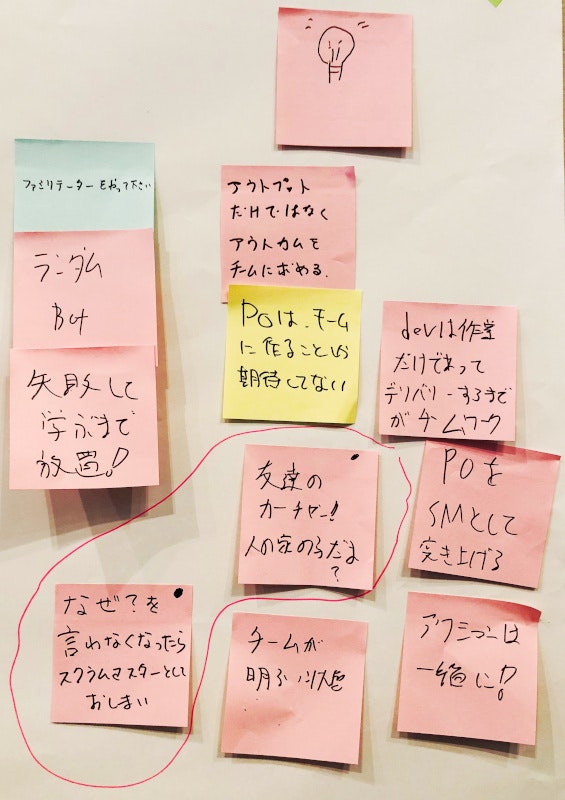 ファシリテーターをやって下さい
ランダム
Bot
失敗して
学ぶまで
放置!
アウトプット
だけではなく
アウトカムを
チームに求める.
POは、チーム
に作ることしか
期待してない
devは作業
だけであって
デリバリーするまで
がチームワーク
友達の
カーチャン!
人の家の子だよ
?
POを
SMとして
突き上げる
なぜ?を
言わなくなったら
スクラムマスターとして
おしまい
チームが
明るい
アクションは
一緒に!?